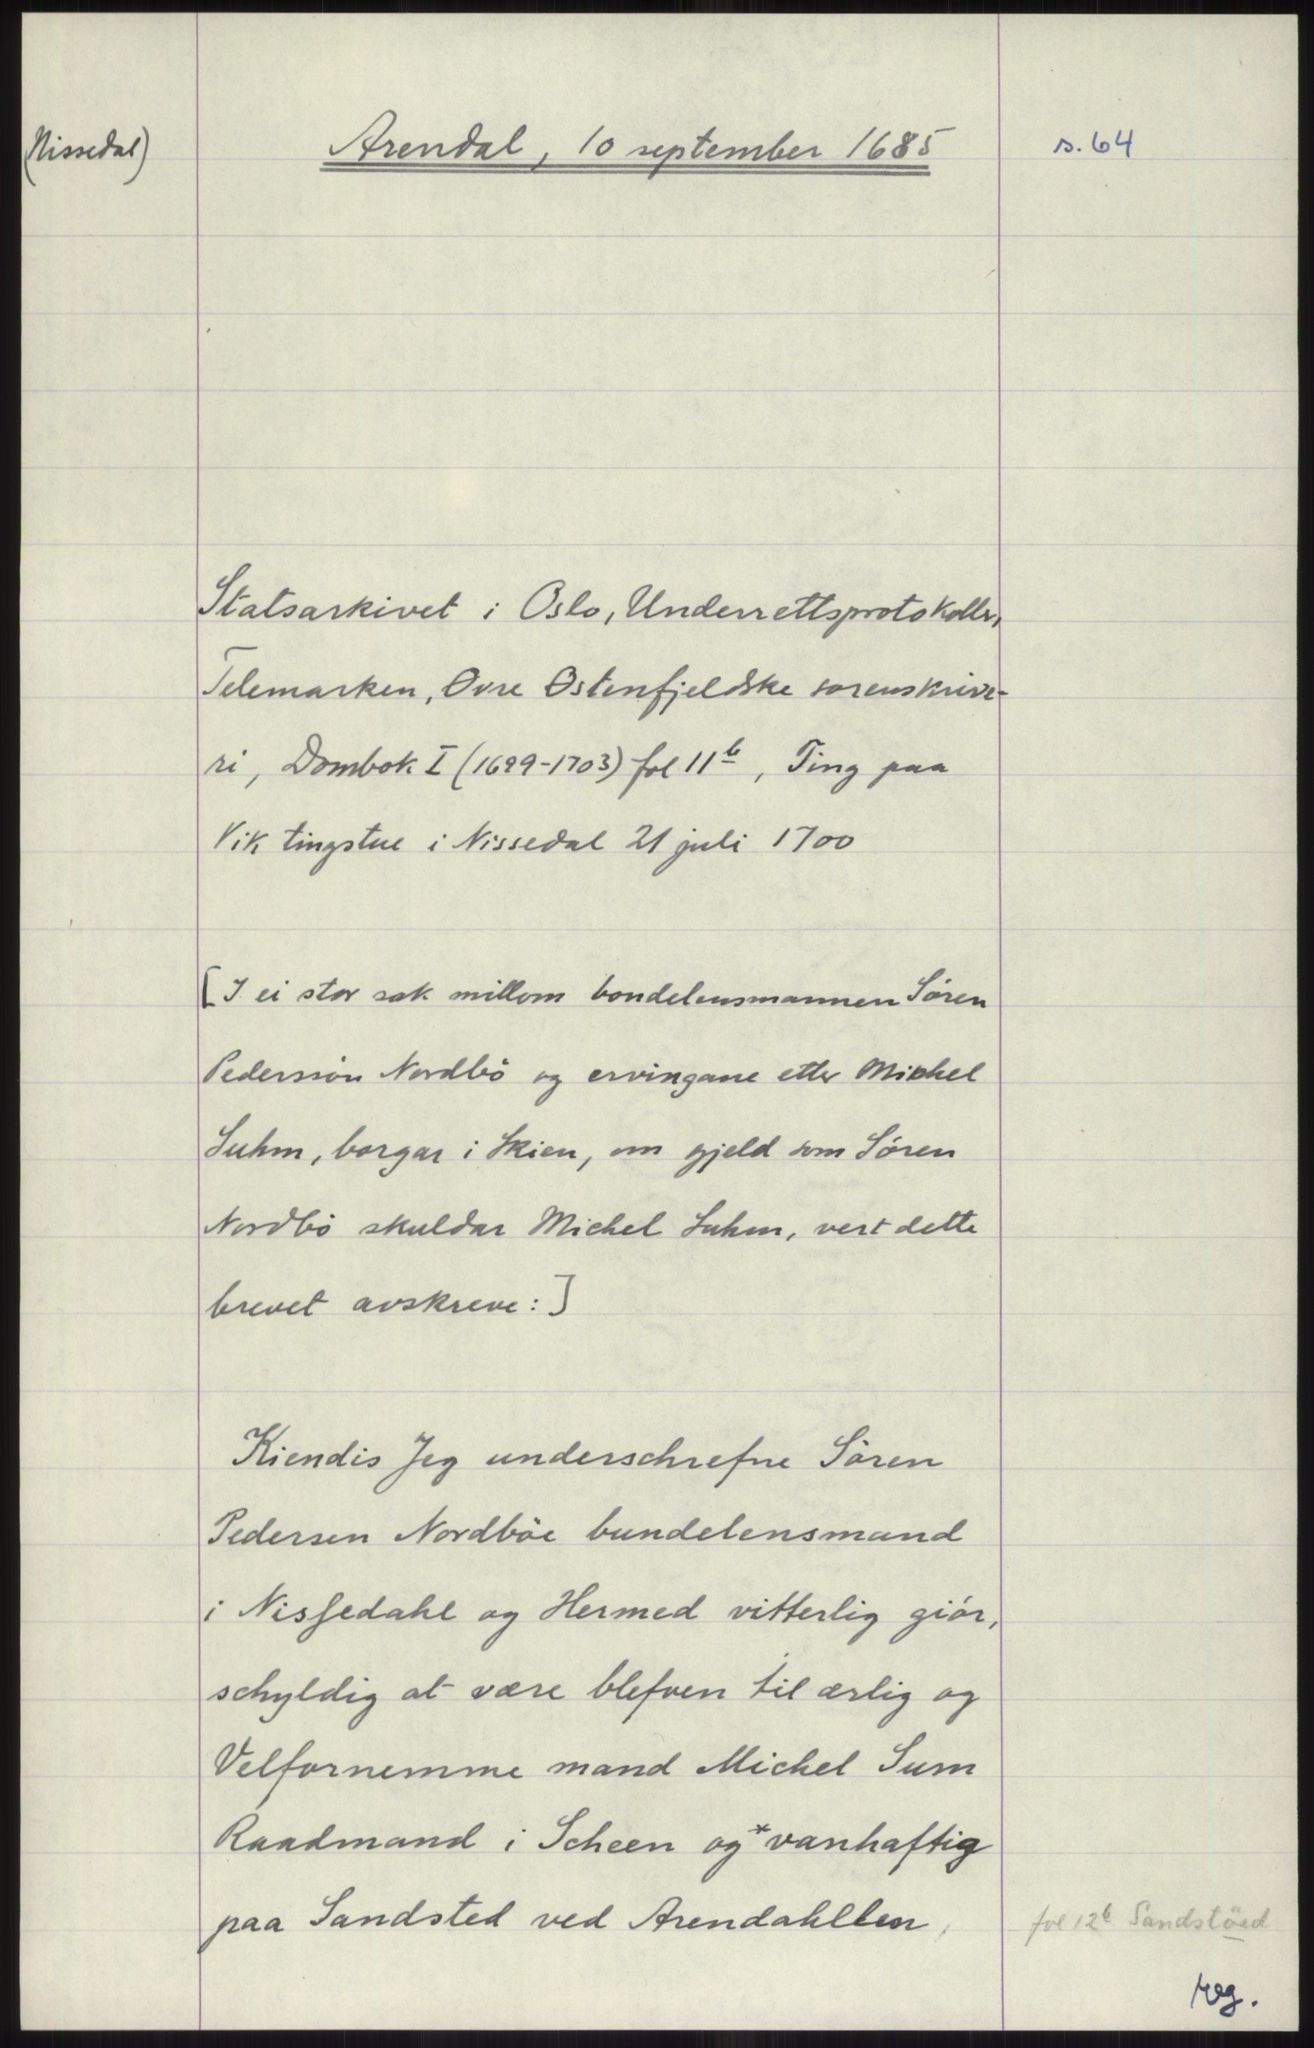 (Nissedal)
Arendal, 10 september 1685
s. 64
Statsarkivet i Oslo, Underrettsprotokoller,
Telemarken, Øvre Østenfjeldske sorenskrive-
ri, Dombok I (1699-1703) fol 11b, Ting paa
Vik tingstue i Nissedal 21 juli 1700
[I ei stor sak millom bondelensmannen Sören
Pedersön Nordbö og ervingane etter Michel
Suhm, borgar i Skien, om gjeld som Sören
Nordbö skuldar Michel Suhm, vert dette
brevet avskreve:]
Kiendis Jeg underschrefne Sören
Pedersen Nordböe bundelensmand
i Nisſedahl og Hermed vitterlig giör,
schyldig at være blefven til ærlig og
Velfornemme mand Michel Sum
Raadmand i Scheen og *vanhaftig
paa Sandsted ved Arendahllen,
fol 12b Sandstöed
reg.